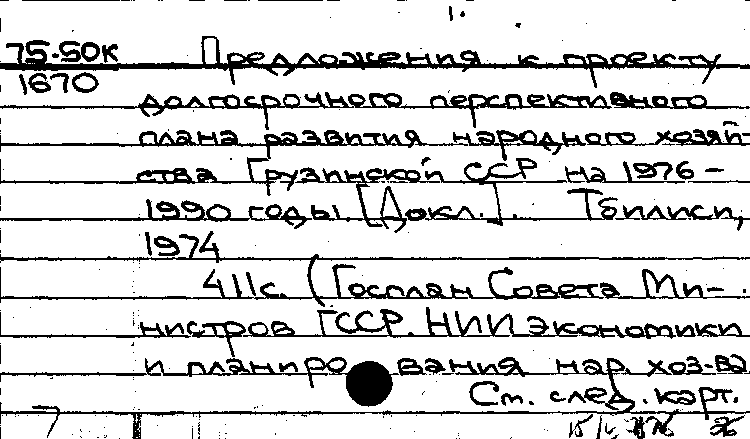 1.
75-50к
1670
Предложения к проекту
долгосрочного перспективного
плана развития народного хозяй-
ства Грузинской ССР на 1976-
1990 годы. [Докл.]. Тбилиси,
1974
411с. (Госплан Совета Ми-
нистров ГССР. НИИ экономики
и планирования нар. хоз-ва
См. след. карт.